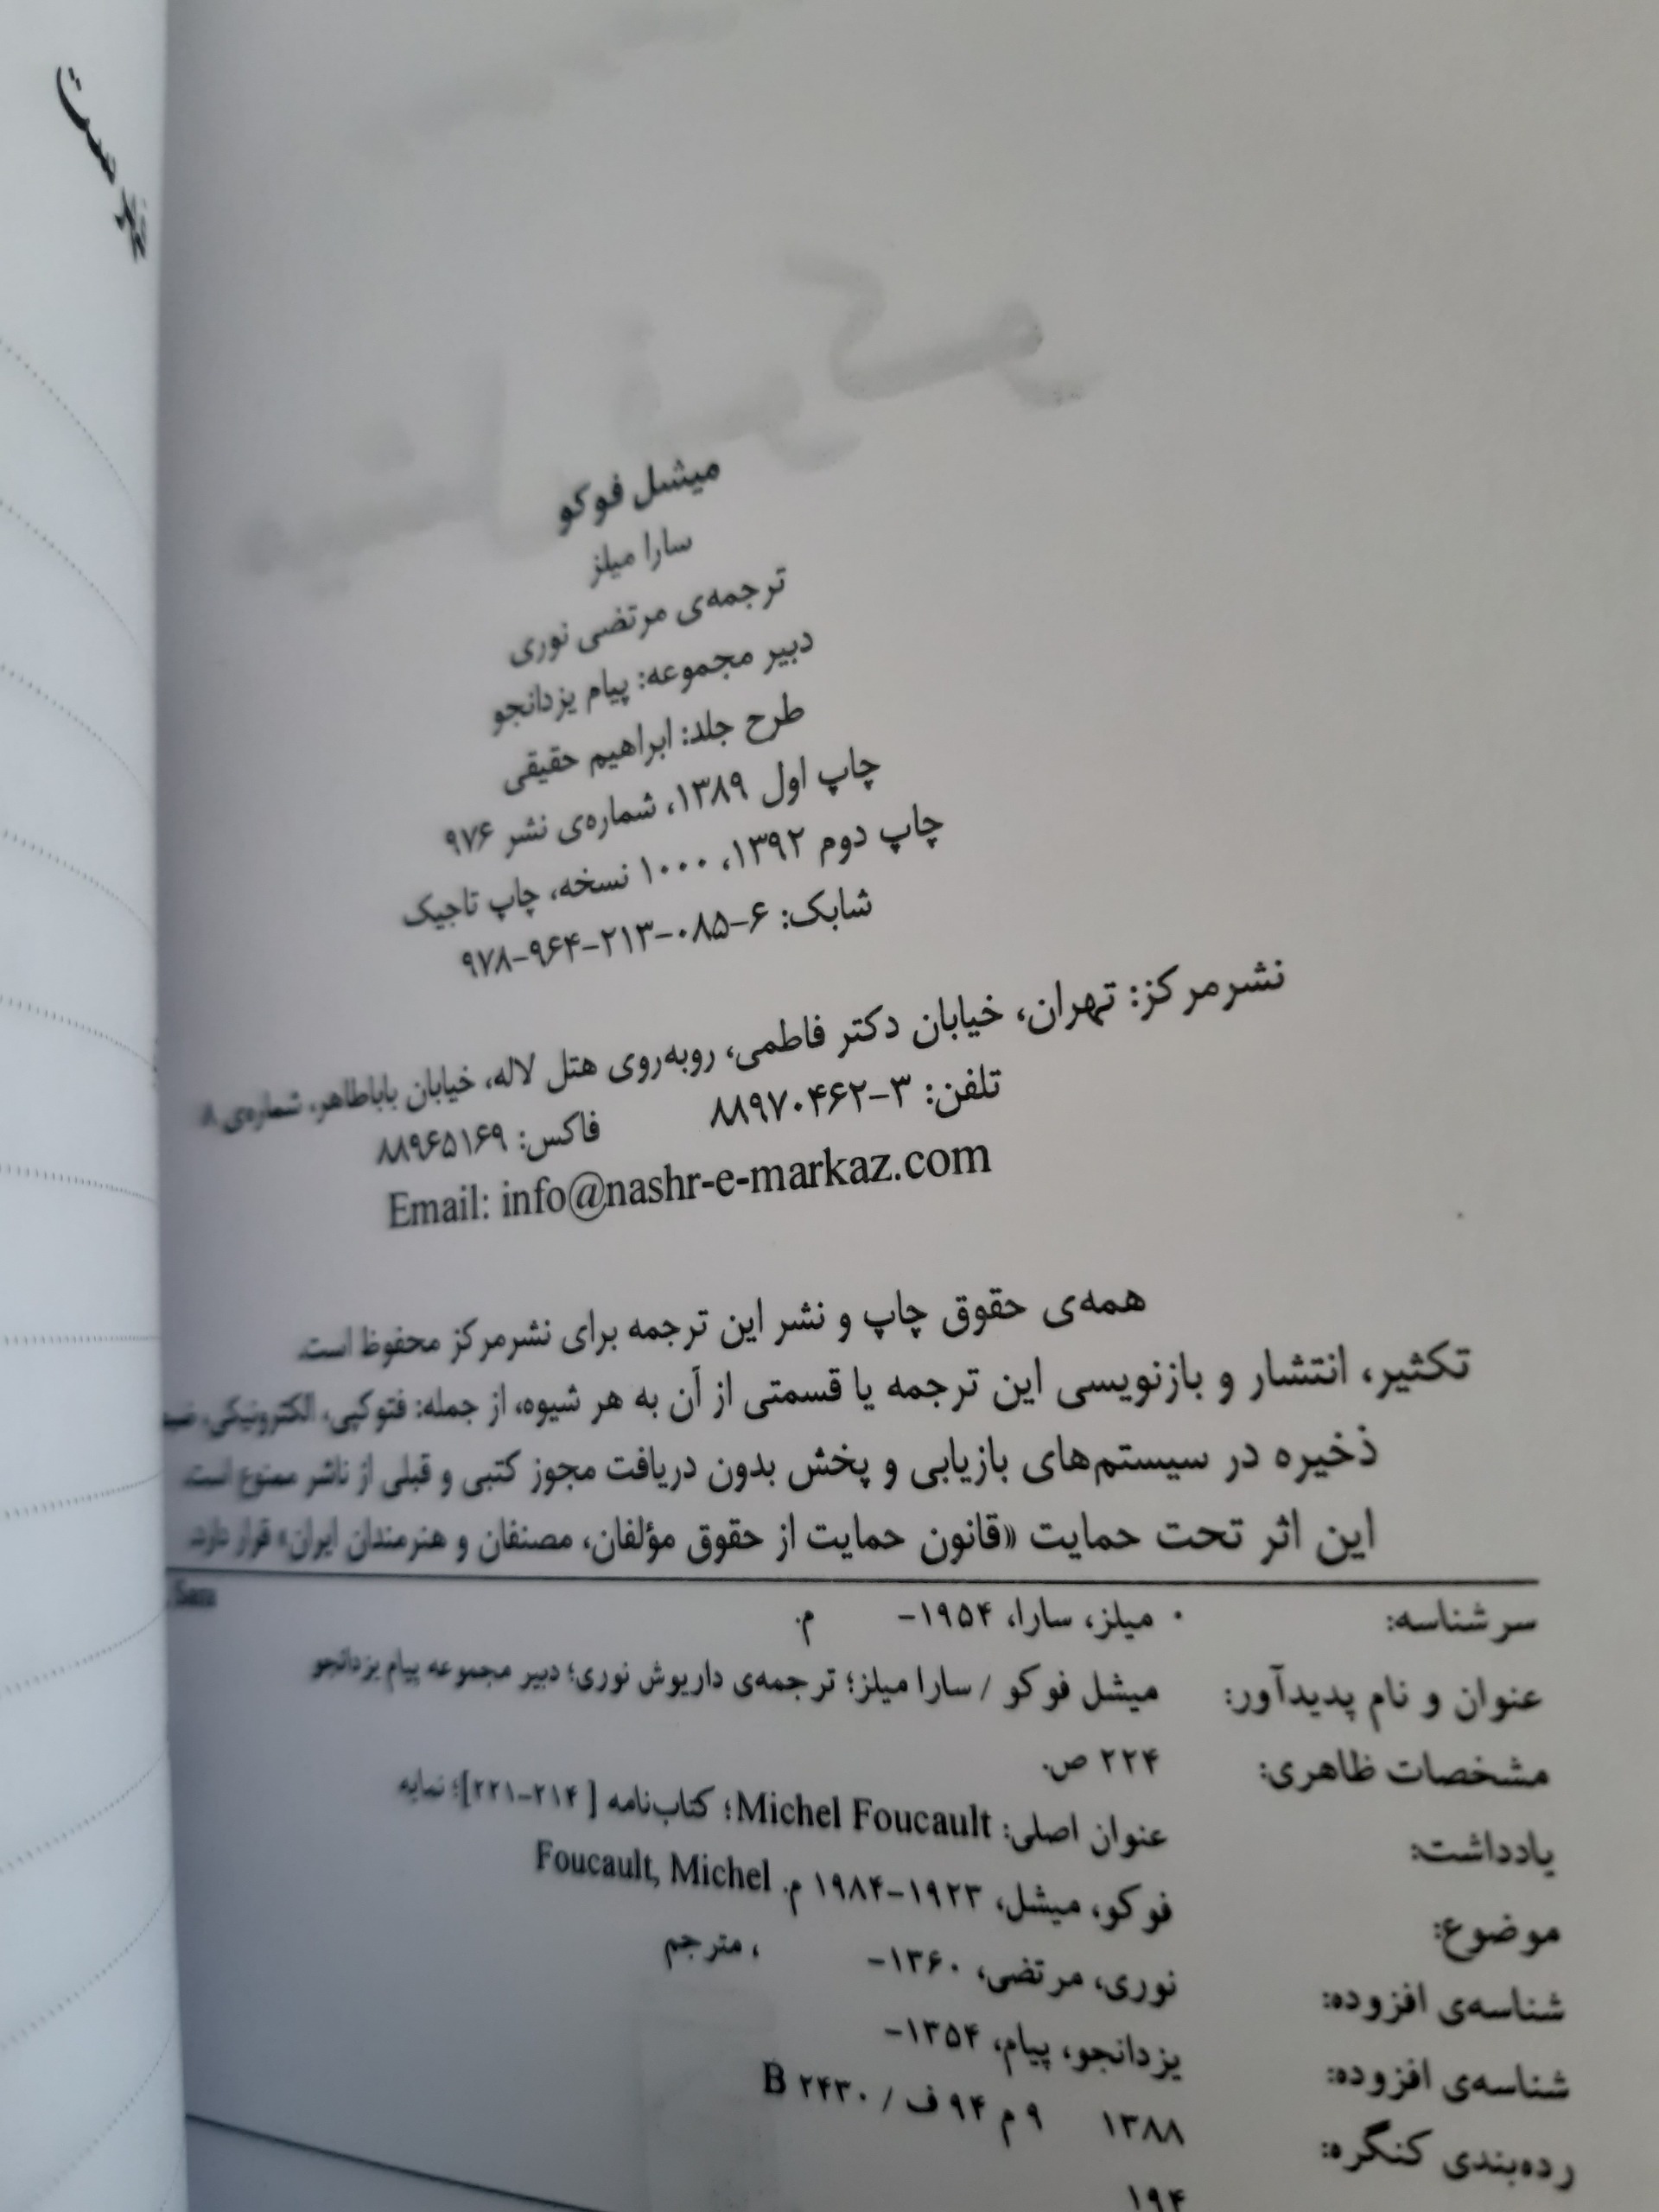 فهرست
میشل فوکو
سارا میلز
ترجمه‌ی مرتضی نوری
دبیر مجموعه: پیام یزدانجو
طرح جلد: ابراهیم حقیقی
چاپ اول ۱۳۸۹، شماره‌ی نشر ۹۷۶
چاپ دوم ۱۳۹۲، ۱۰۰۰ نسخه، چاپ تاجیک
شابک: ۶-۰۸۵-۲۱۳-۹۶۴-۹۷۸
نشرمرکز: تهران، خیابان دکتر فاطمی، روبه‌روی هتل لاله، خیابان باباطاهر، شماره‌ی ۸
تلفن: ۳-۸۸۹۷۰۴۶۲ فاکس: ۸۸۹۶۵۱۶۹
Email: info@nashr-e-markaz.com
همه‌ی حقوق چاپ و نشر این ترجمه برای نشرمرکز محفوظ است.
تکثیر، انتشار و بازنویسی این ترجمه یا قسمتی از آن به هر شیوه، از جمله: فتوکپی، الکترونیکی،
ذخیره در سیستم‌های بازیابی و پخش بدون دریافت مجوز کتبی و قبلی از ناشر ممنوع است.
این اثر تحت حمایت «قانون حمایت از حقوق مؤلفان، مصنفان و هنرمندان ایران» قرار دارد.
سرشناسه: • میلز، سارا، ۱۹۵۴- م. Sara
عنوان و نام پدیدآور: میشل فوکو / سارا میلز؛ ترجمه‌ی داریوش نوری؛ دبیر مجموعه پیام یزدانجو
مشخصات ظاهری: ۲۲۴ ص.
یادداشت: عنوان اصلی: Michel Foucault؛ کتاب‌نامه [۲۱۴-۲۲۱]؛ نمایه
موضوع: فوکو، میشل، ۱۹۲۳-۱۹۸۴ م. Foucault, Michel
شناسه‌ی افزوده: نوری، مرتضی، ۱۳۶۰- ، مترجم
شناسه‌ی افزوده: یزدانجو، پیام، ۱۳۵۴-
رده‌بندی کنگره: ۱۳۸۸ ۹ م ۹۴ ف / B ۲۴۳۰
۱۹۴